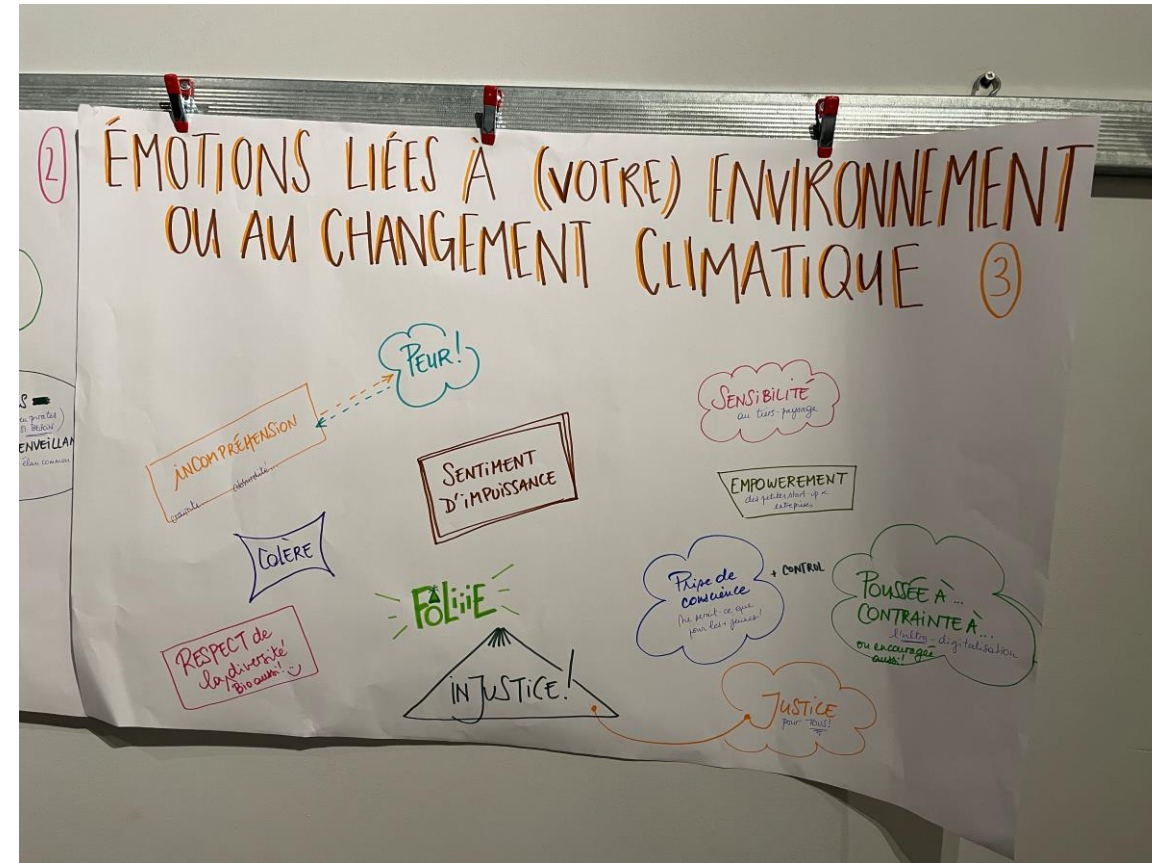 2
ÉMOTIONS LIÉES À (VOTRE) ENVIRONNEMENT
OU AU CHANGEMENT CLIMATIQUE 3
PEUR!
INCOMPRÉHENSION
SENTIMENT
D'IMPUISSANCE
SENSIBILITÉ
au tiers-paysage
EMPOWEREMENT
des petites start-up &
entreprises
COLÈRE
FOLiiiE
RESPECT de
la diversité
Bio aussi!
INJUSTICE!
Prise de
conscience
ne serait-ce que
pour les + jeunes!
+ CONTROL
POUSSÉE À...
CONTRAINTE À...
l'ultra-digitalisation
ou encouragée
aussi!
JUSTICE
pour TOUS!
ENVEILLAN
élan commun